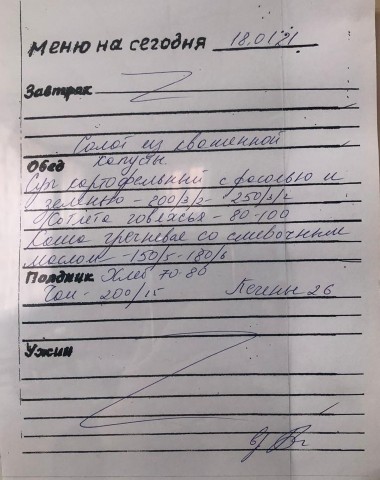 Меню на сегодня 18.01.21
Завтрак
Салат из квашенной
Обед капусты
Суп картофельный с фасолью и
зеленью - 200/3/2 - 250/3/2
Котлета говяжья - 80-100
Каша гречневая со сливочным
маслом - 150/5 - 180/6
Полдник Хлеб 70-80
Чай - 200/15 Печенье 26
Ужин